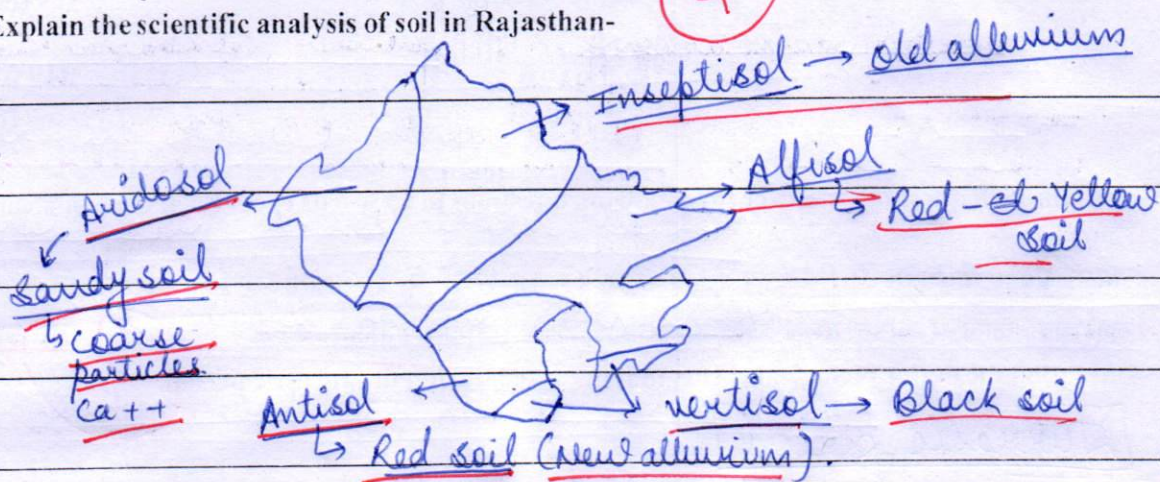 Explain the scientific analysis of soil in Rajasthan-
Inseptisol → old alluvium
Alfisol
↳ Red - Yellow
soil
Aridosol
Sandy soil
↳ coarse
particles
Ca ++
Antisol
↳ Red soil (New alluvium).
vertisol → Black soil